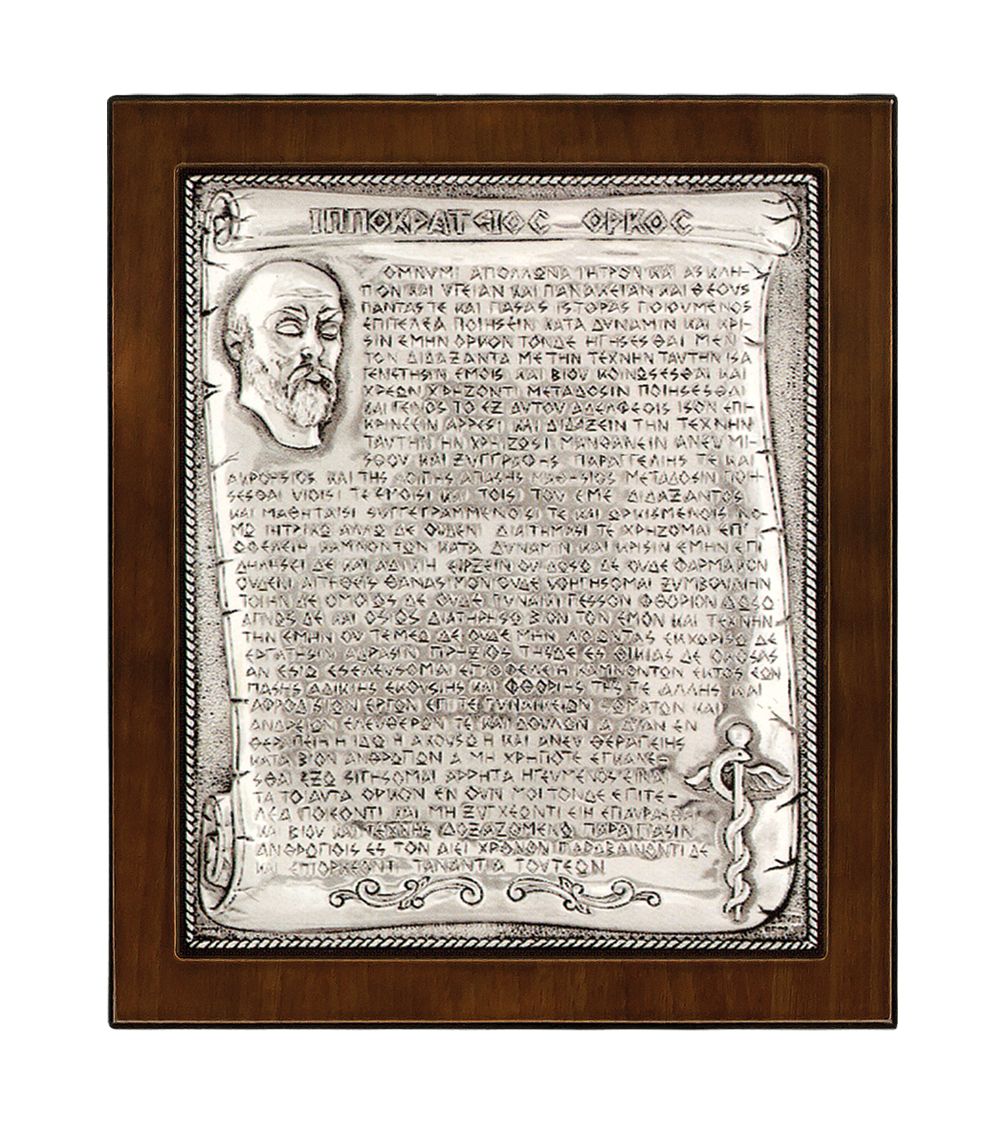 ΙΠΠΟΚΡΑΤΕΙΟΣ ΟΡΚΟΣ
ΟΜΝΥΜΙ ΑΠΟΛΛΩΝΑ ΙΗΤΡΟΝ ΚΑΙ ΑΣΚΛΗ-
ΠΟΝ ΚΑΙ ΥΓΕΙΑΝ ΚΑΙ ΠΑΝΑΚΕΙΑΝ ΚΑΙ ΘΕΟΥΣ
ΠΑΝΤΑΣ ΤΕ ΚΑΙ ΠΑΣΑΣ ΙΣΤΟΡΑΣ ΠΟΙΟΥΜΕΝΟΣ
ΕΠΙΤΕΛΕΑ ΠΟΙΗΣΕΙΝ ΚΑΤΑ ΔΥΝΑΜΙΝ ΚΑΙ ΚΡΙ-
ΣΙΝ ΕΜΗΝ ΟΡΚΟΝ ΤΟΝΔΕ ΗΓΗΣΕΣΘΑΙ ΜΕΝ
ΤΟΝ ΔΙΔΑΞΑΝΤΑ ΜΕ ΤΗΝ ΤΕΧΝΗΝ ΤΑΥΤΗΝ ΙΣΑ
ΓΕΝΕΤΗΣΙΝ ΕΜΟΙΣ ΚΑΙ ΒΙΟΥ ΚΟΙΝΩΣΕΣΘΑΙ ΚΑΙ
ΧΡΕΩΝ ΧΡΗΖΟΝΤΙ ΜΕΤΑΔΟΣΙΝ ΠΟΙΗΣΕΣΘΑΙ
ΚΑΙ ΓΕΝΟΣ ΤΟ ΕΞ ΑΥΤΟΥ ΑΔΕΛΦΕΟΙΣ ΙΣΟΝ ΕΠΙ-
ΚΡΙΝΕΕΙΝ ΑΡΡΕΣΙ ΚΑΙ ΔΙΔΑΞΕΙΝ ΤΗΝ ΤΕΧΝΗΝ
ΤΑΥΤΗΝ ΗΝ ΧΡΗΙΖΩΣΙ ΜΑΝΘΑΝΕΙΝ ΑΝΕΥ ΜΙ-
ΣΘΟΥ ΚΑΙ ΞΥΓΓΡΑΦΗΣ ΠΑΡΑΓΓΕΛΙΗΣ ΤΕ ΚΑΙ
ΚΑΙ ΤΗΣ ΛΟΙΠΗΣ ΑΠΑΣΗΣ ΜΑΘΗΣΙΟΣ ΜΕΤΑΔΟΣΙΝ ΠΟΙΗ-
ΣΕΣΘΑΙ ΥΙΟΙΣΙ ΤΕ ΕΜΟΙΣΙ ΚΑΙ ΤΟΙΣΙ ΤΟΥ ΕΜΕ ΔΙΔΑΞΑΝΤΟΣ
ΚΑΙ ΜΑΘΗΤΑΙΣΙ ΣΥΓΓΕΓΡΑΜΜΕΝΟΙΣΙ ΤΕ ΚΑΙ ΩΡΚΙΣΜΕΝΟΙΣ ΝΟ-
ΜΩ ΙΗΤΡΙΚΩ ΑΛΛΩ ΔΕ ΟΥΔΕΝΙ ΔΙΑΙΤΗΜΑΣΙ ΤΕ ΧΡΗΣΟΜΑΙ ΕΠ'
ΩΦΕΛΕΙΗ ΚΑΜΝΟΝΤΩΝ ΚΑΤΑ ΔΥΝΑΜΙΝ ΚΑΙ ΚΡΙΣΙΝ ΕΜΗΝ ΕΠΙ
ΔΗΛΗΣΕΙ ΔΕ ΚΑΙ ΑΔΙΚΙΗ ΕΙΡΞΕΙΝ ΟΥ ΔΩΣΩ ΔΕ ΟΥΔΕ ΦΑΡΜΑΚΟΝ
ΟΥΔΕΝΙ ΑΙΤΗΘΕΙΣ ΘΑΝΑΣΙΜΟΝ ΟΥΔΕ ΥΦΗΓΗΣΟΜΑΙ ΞΥΜΒΟΥΛΙΗΝ
ΤΟΙΗΝΔΕ ΟΜΟΙΩΣ ΔΕ ΟΥΔΕ ΓΥΝΑΙΚΙ ΠΕΣΣΟΝ ΦΘΟΡΙΟΝ ΔΩΣΩ
ΑΓΝΩΣ ΔΕ ΚΑΙ ΟΣΙΩΣ ΔΙΑΤΗΡΗΣΩ ΒΙΟΝ ΤΟΝ ΕΜΟΝ ΚΑΙ ΤΕΧΝΗΝ
ΤΗΝ ΕΜΗΝ ΟΥ ΤΕΜΕΩ ΔΕ ΟΥΔΕ ΜΗΝ ΛΙΘΙΩΝΤΑΣ ΕΚΧΩΡΗΣΩ ΔΕ
ΕΡΓΑΤΗΣΙΝ ΑΝΔΡΑΣΙΝ ΠΡΗΞΙΟΣ ΤΗΣΔΕ ΕΣ ΟΙΚΙΑΣ ΔΕ ΟΚΟΣΑΣ
ΑΝ ΕΣΙΩ ΕΣΕΛΕΥΣΟΜΑΙ ΕΠ ΩΦΕΛΕΙΗ ΚΑΜΝΟΝΤΩΝ ΕΚΤΟΣ ΕΩΝ
ΠΑΣΗΣ ΑΔΙΚΙΗΣ ΕΚΟΥΣΙΗΣ ΚΑΙ ΦΘΟΡΙΗΣ ΤΗΣ ΤΕ ΑΛΛΗΣ ΚΑΙ
ΑΦΡΟΔΙΣΙΩΝ ΕΡΓΩΝ ΕΠΙ ΤΕ ΓΥΝΑΙΚΕΙΩΝ ΣΩΜΑΤΩΝ ΚΑΙ
ΑΝΔΡΕΙΩΝ ΕΛΕΥΘΕΡΩΝ ΤΕ ΚΑΙ ΔΟΥΛΩΝ Α Δ'ΑΝ ΕΝ
ΘΕΡΑΠΕΙΗ Η ΙΔΩ Η ΑΚΟΥΣΩ Η ΚΑΙ ΑΝΕΥ ΘΕΡΑΠΕΙΗΣ
ΚΑΤΑ ΒΙΟΝ ΑΝΘΡΩΠΩΝ Α ΜΗ ΧΡΗ ΠΟΤΕ ΕΚΚΑΛΕΕ-
ΣΘΑΙ ΕΞΩ ΣΙΓΗΣΟΜΑΙ ΑΡΡΗΤΑ ΗΓΕΥΜΕΝΟΣ ΕΙΝΑΙ
ΤΑ ΤΟΙΑΥΤΑ ΟΡΚΟΝ ΕΝ ΟΥΝ ΜΟΙ ΤΟΝΔΕ ΕΠΙΤΕ-
ΛΕΑ ΠΟΙΕΟΝΤΙ ΚΑΙ ΜΗ ΞΥΓΧΕΟΝΤΙ ΕΙΗ ΕΠΑΥΡΑΣΘΑΙ
ΚΑΙ ΒΙΟΥ ΚΑΙ ΤΕΧΝΗΣ ΔΟΞΑΖΟΜΕΝΩ ΠΑΡΑ ΠΑΣΙΝ
ΑΝΘΡΩΠΟΙΣ ΕΣ ΤΟΝ ΑΙΕΙ ΧΡΟΝΟΝ ΠΑΡΑΒΑΙΝΟΝΤΙ ΔΕ
ΚΑΙ ΕΠΙΟΡΚΕΟΝΤΙ ΤΑΝΑΝΤΙΑ ΤΟΥΤΕΩΝ